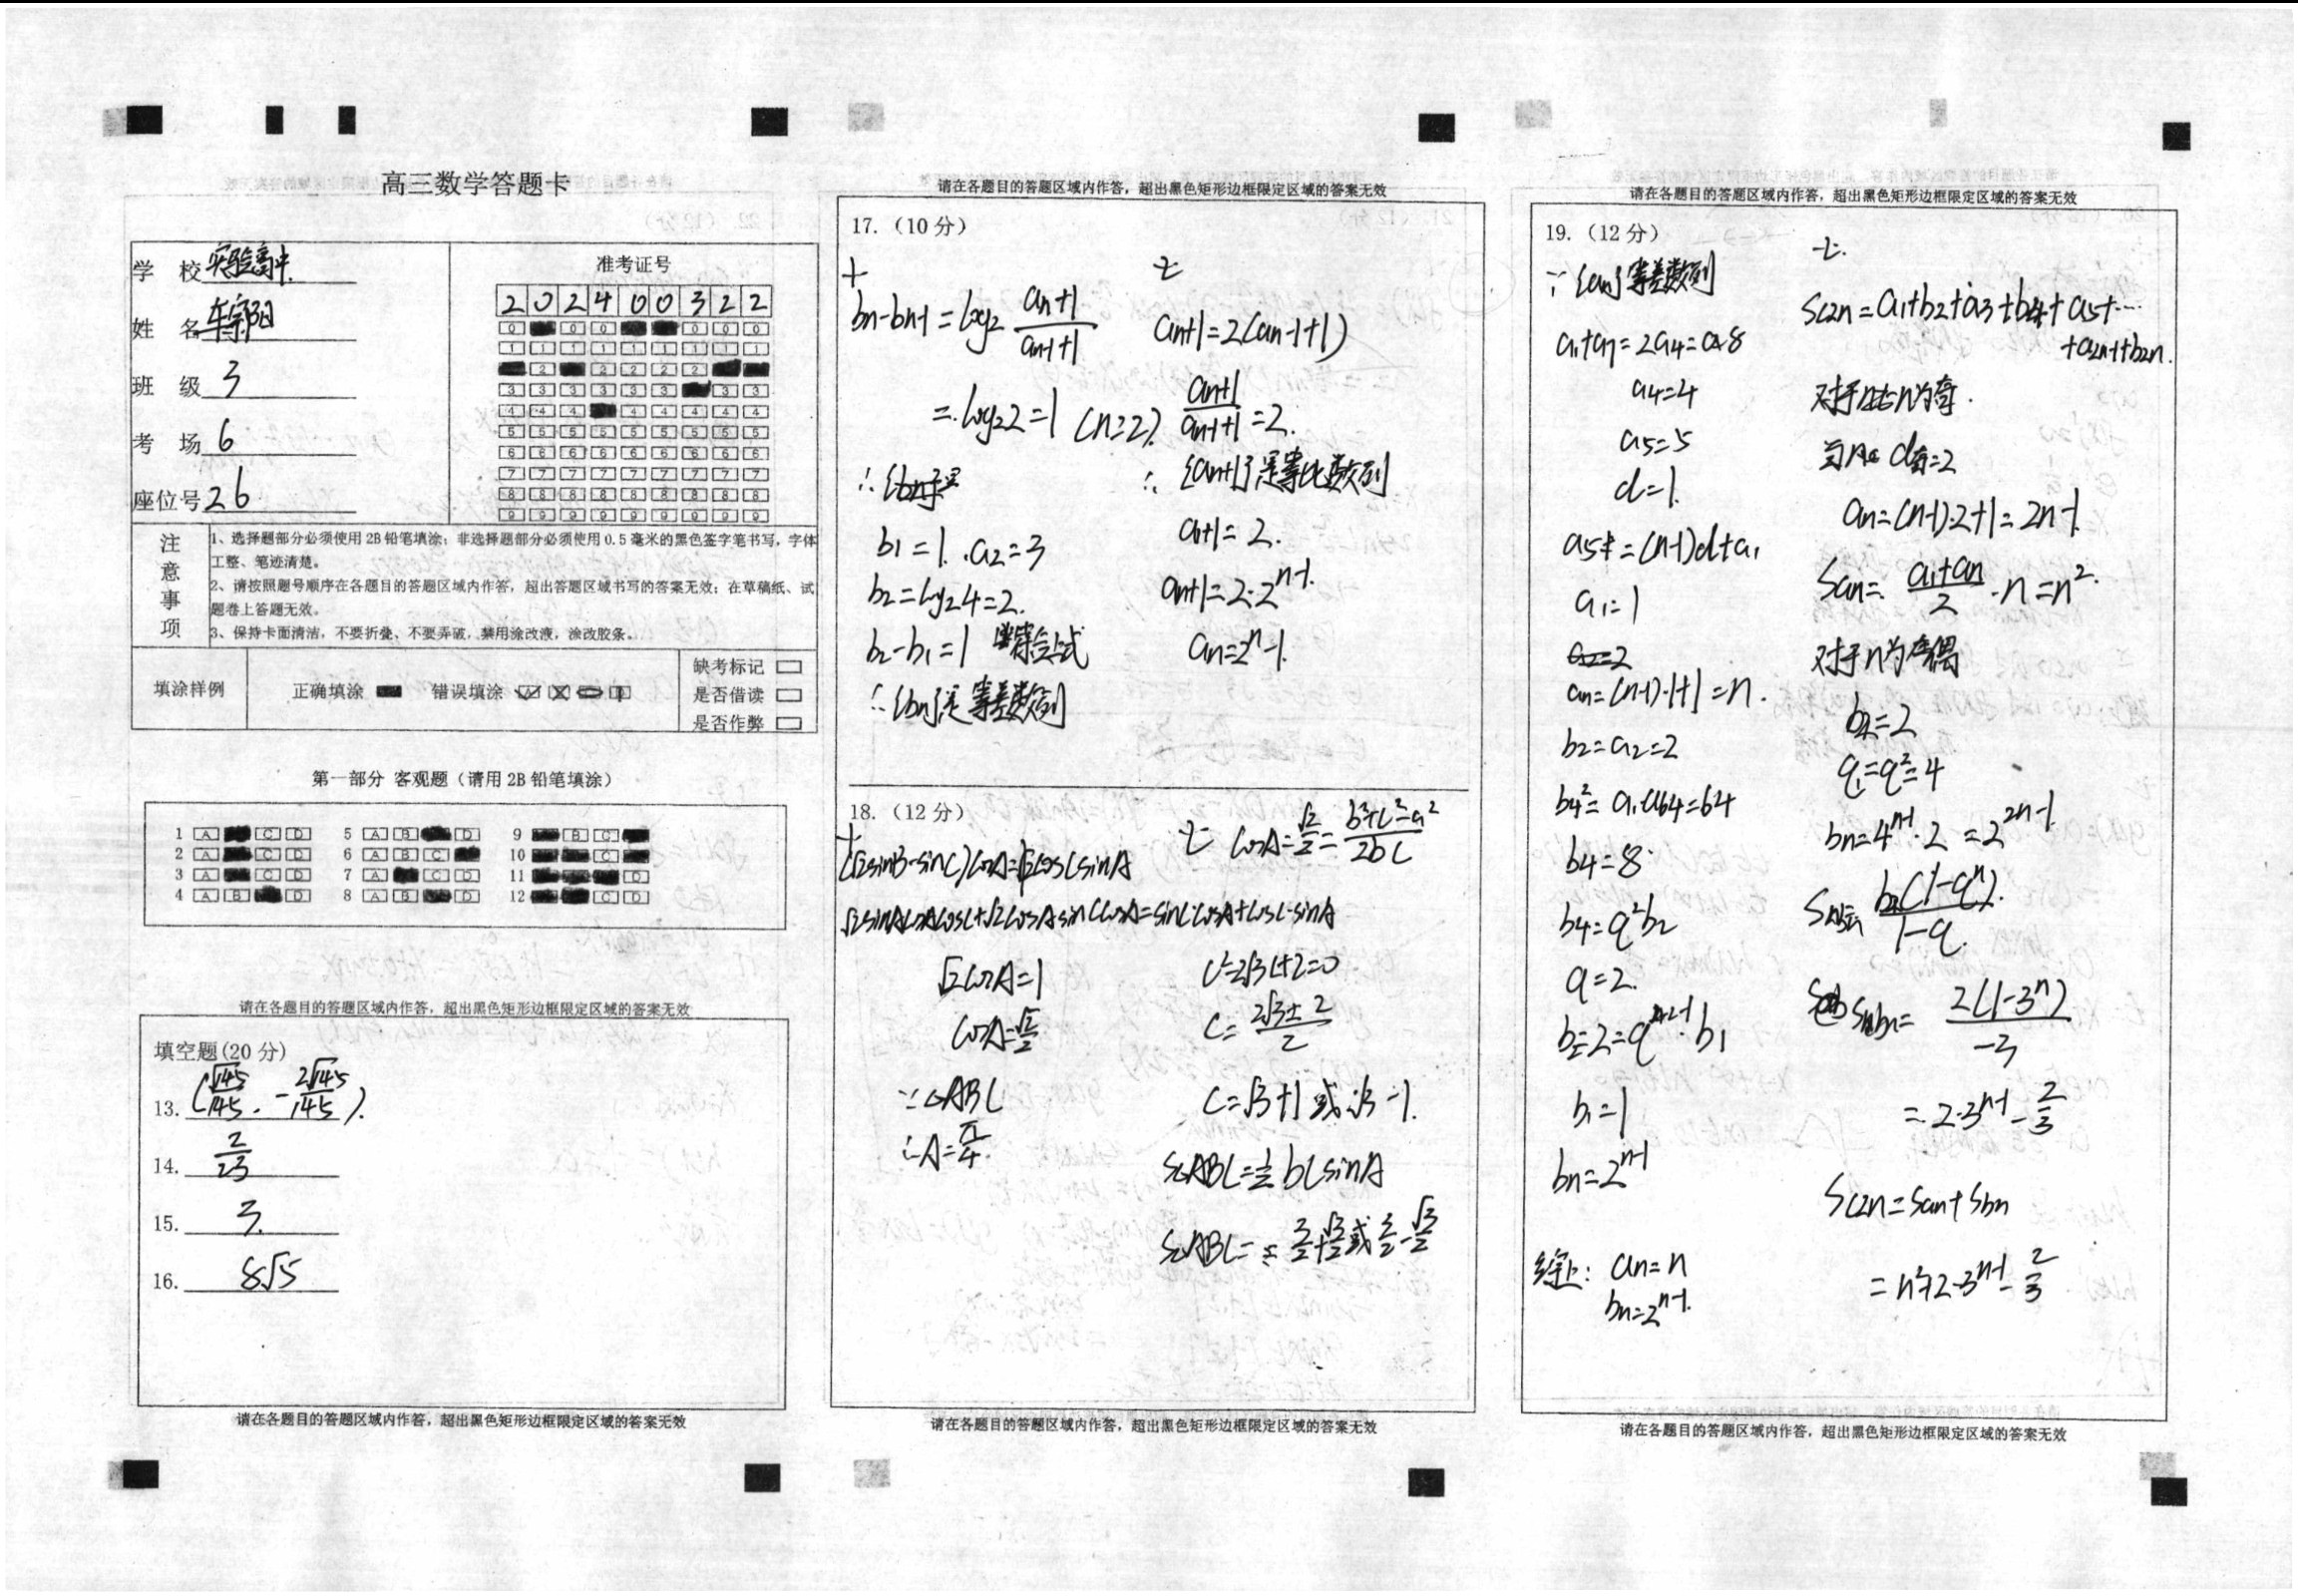 高三数学答题卡
学 校 实验高中.
姓 名
班 级 3
考 场 6
座位号 26
准考证号
2 0 2 4 0 0 3 2 2
0 0 0 0 0 0
1 1 1 1 1 1 1 1 1
2 2 2 2 2
3 3 3 3 3 3 3 3
4 4 4 4 4 4 4 4
5 5 5 5 5 5 5 5 5
6 6 6 6 6 6 6 6 6
7 7 7 7 7 7 7 7 7
8 8 8 8 8 8 8 8 8
9 9 9 9 9 9 9 9 9
注意事项
1、选择题部分必须使用 2B 铅笔填涂；非选择题部分必须使用 0.5 毫米的黑色签字笔书写，字体
工整、笔迹清楚。
2、请按照题号顺序在各题目的答题区域内作答，超出答题区域书写的答案无效；在草稿纸、试
题卷上答题无效。
3、保持卡面清洁，不要折叠、不要弄破，禁用涂改液，涂改胶条。
填涂样例 正确填涂 错误填涂
缺考标记
是否借读
是否作弊
第一部分 客观题（请用 2B 铅笔填涂）
1 A C D 5 A B D 9 B C
2 A C D 6 A B C 10 C
3 A C D 7 A C D 11 D
4 A B D 8 A B D 12 C D
请在各题目的答题区域内作答，超出黑色矩形边框限定区域的答案无效
填空题(20 分)
13. (√145/145, -2√145/145).
14. 2/23
15. 3.
16. 8√5
请在各题目的答题区域内作答，超出黑色矩形边框限定区域的答案无效
请在各题目的答题区域内作答，超出黑色矩形边框限定区域的答案无效
17.（10 分）
bn-bn-1=log2 (an+1)/(an-1+1)
=log22=1 (n≥2).
b1=1. a2=3
b2=log24=2.
b2-b1=1 符合上式
∴{bn}是等差数列
an+1=2(an-1+1)
(an+1)/(an-1+1)=2.
∴{an+1}是等比数列
a1+1=2.
an+1=2·2^(n-1).
an=2^n-1.
18.（12 分）
(√2sinB-sinC)cosA=cosCsinA
√2sinAcosAcosC+√2cosAsinCcosA=sinC·cosA+cosC·sinA
√2cosA=1
cosA=√2/2
∵△ABC
∴A=π/4.
cosA=√2/2=(b²+c²-a²)/2bc
c²-2√3c+2=0
c=(2√3±2)/2
c=√3+1或√3-1.
S△ABC=1/2 bcsinA
S△ABC= 3/2+√3/2或3/2-√3/2
请在各题目的答题区域内作答，超出黑色矩形边框限定区域的答案无效
请在各题目的答题区域内作答，超出黑色矩形边框限定区域的答案无效
19.（12 分）
∵{an}等差数列
a1+a7=2a4=8
a4=4
a5=5
d=1.
a5=(n-1)d+a1
a1=1
an=(n-1)·1+1=n.
b2=a2=2
b4²=a1·a64=64
b4=8
b4=q²b2
q=2.
b1=1
bn=2^(n-1)
综上: an=n
bn=2^(n-1).
Sc2n=a1+b2+a3+b4+a5+…
+a2n-1+b2n.
对于n为奇.
d奇=2
an=(n-1)·2+1=2n-1.
San=(a1+an)/2·n=n².
对于n为偶
b2=2
q1=q²=4
bn=4^(n-1)·2=2^(2n-1).
Sbn=2(1-3^n)/-3
=2·3^(n-1)-2/3
Sc2n=San+Sbn
=n²+2·3^(n-1)-2/3
请在各题目的答题区域内作答，超出黑色矩形边框限定区域的答案无效